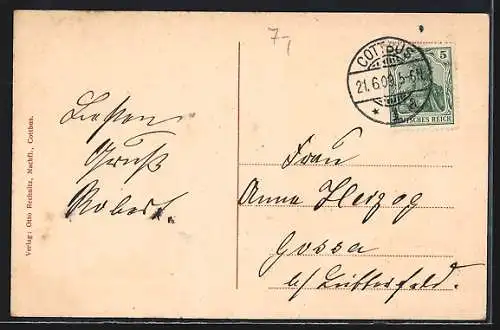 7,
COTTBUS
21.6.09. 5-6N.
* a
5
DEUTSCHES REICH
Liebsten
Gruß
Robert.
Frau
Anna Herzog
Gossa
b/ Bitterfeld.
Verlag: Otto Rechnitz, Nachfl., Cottbus.